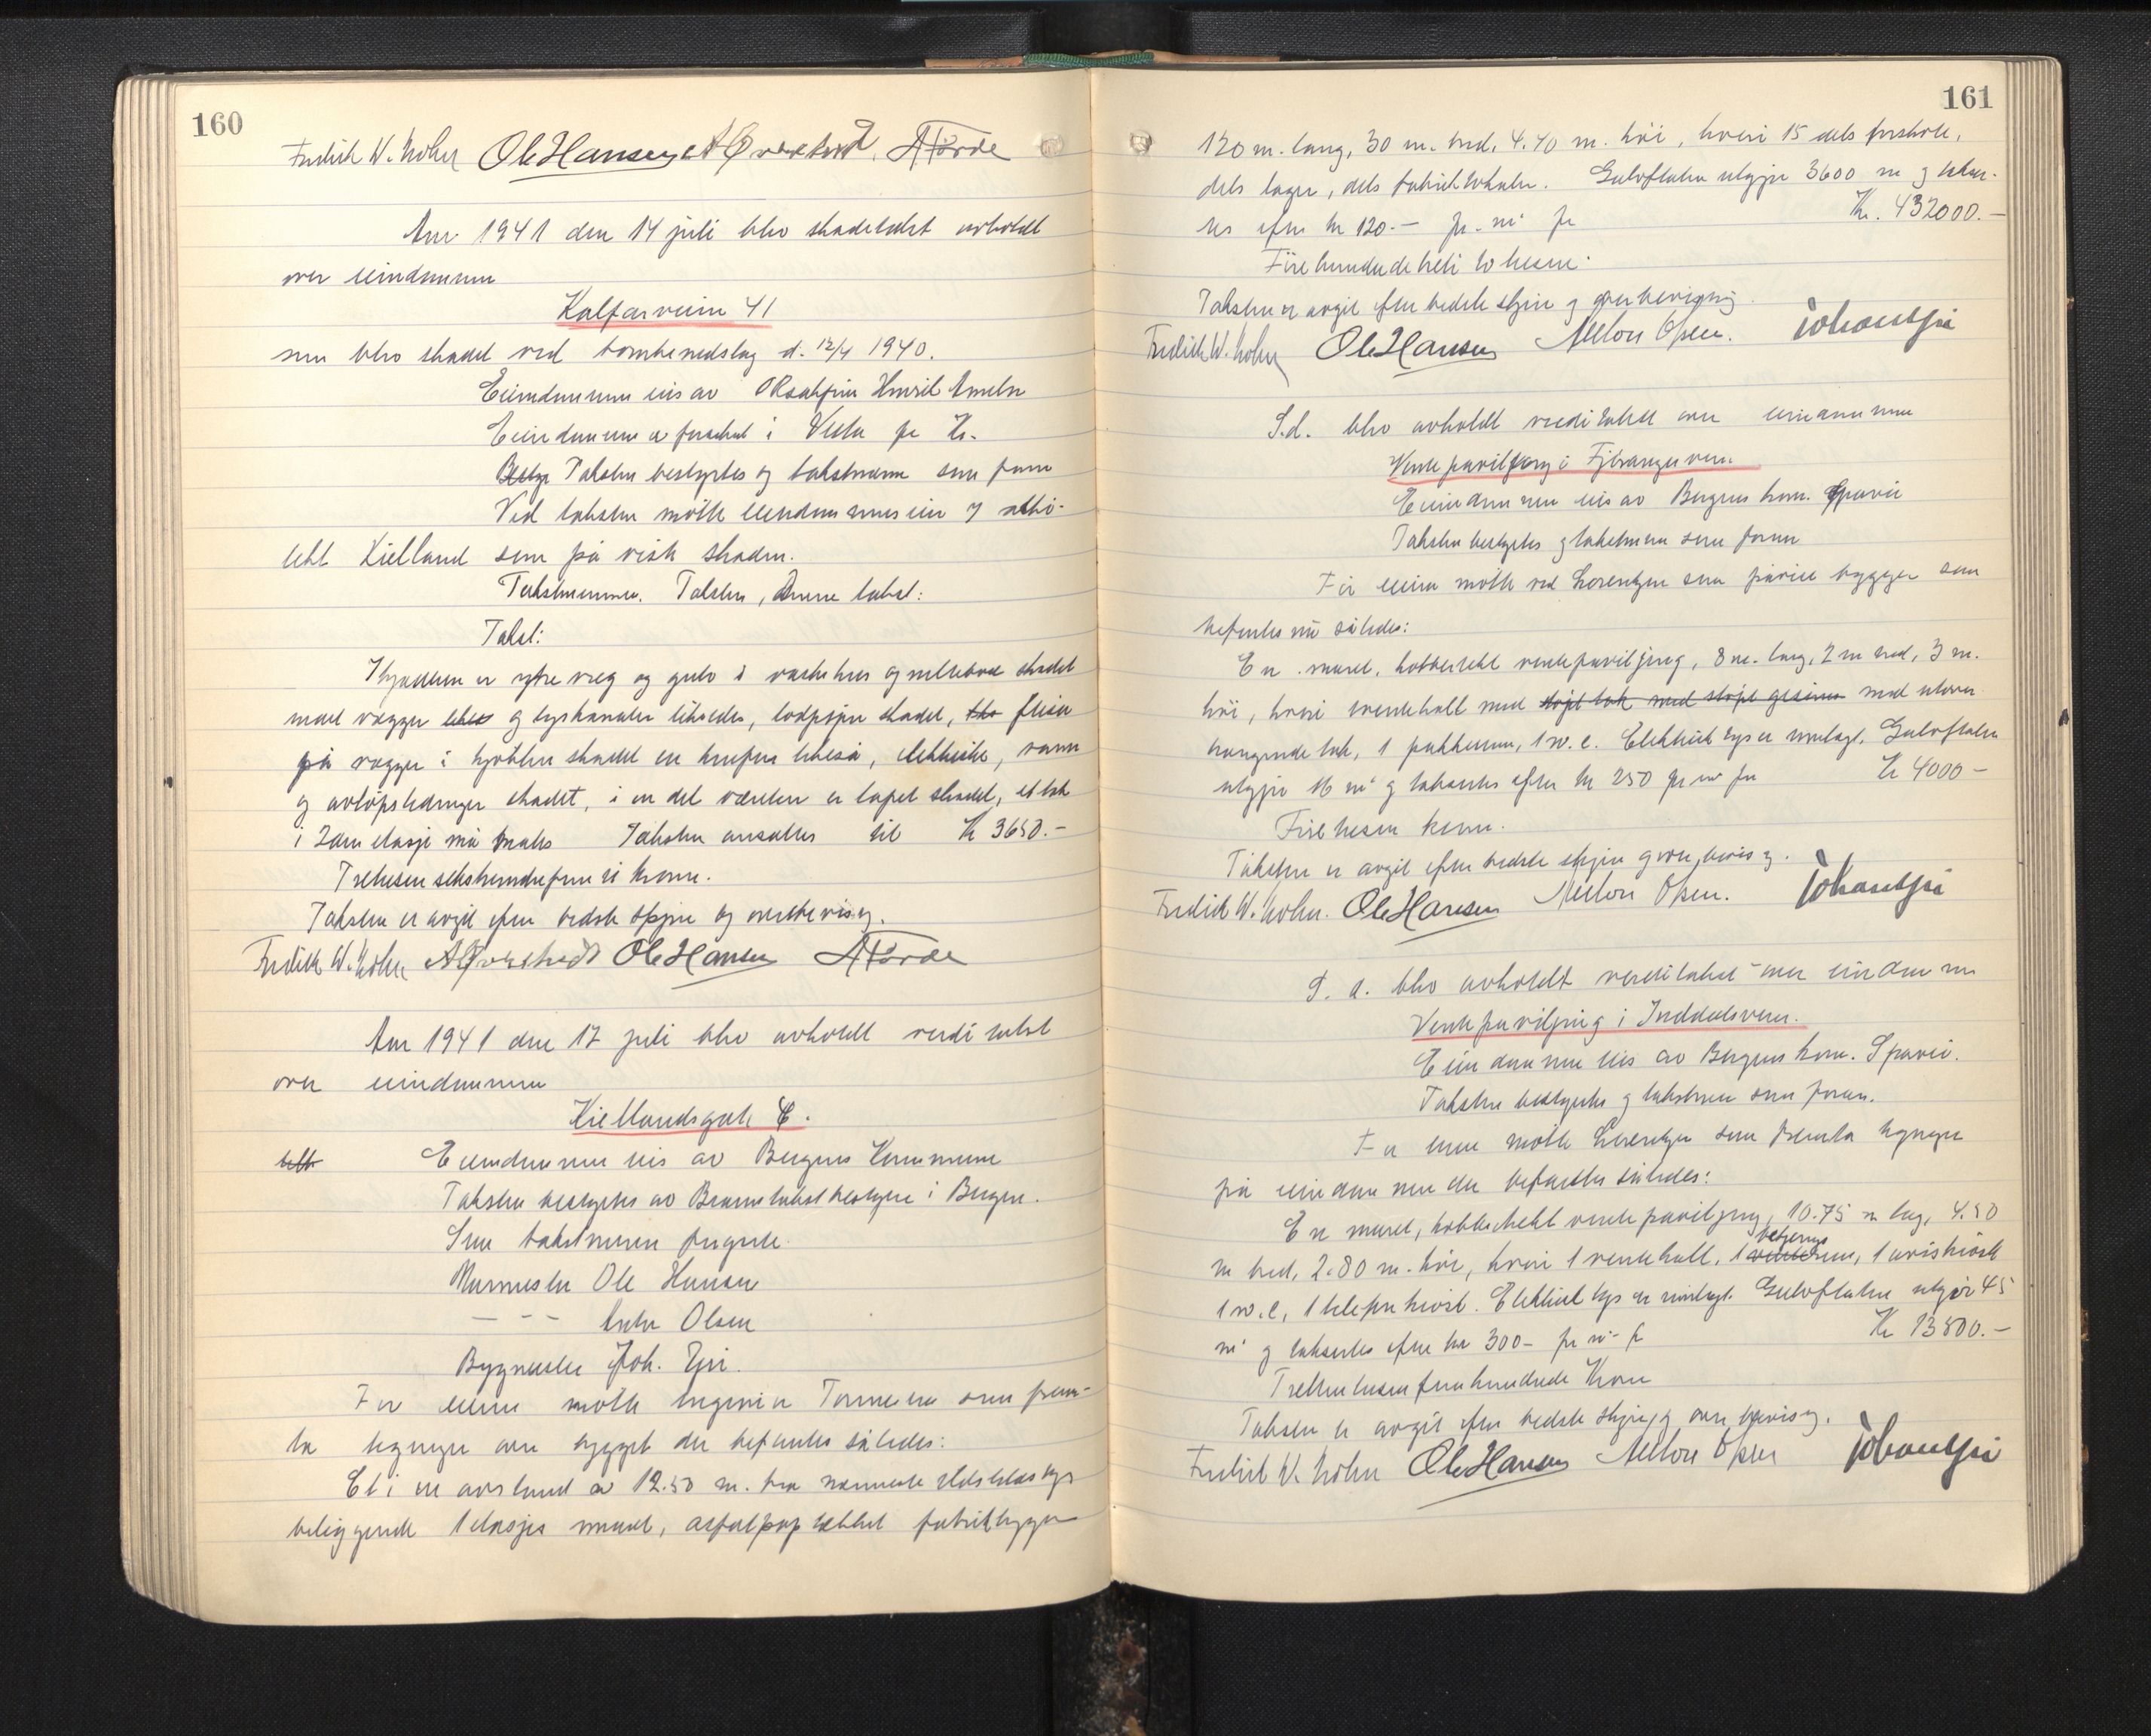 160
Fredrik W. Kohn Ole Hansen A Øvrebotten A Førde
Aar 1941 den 14 juli blev skadetakst avholdt
over eiendommen
Kalfarveien 41
som blev skadet ved bombenedslag d. 12/4 1940.
Eiendommen eies av Henrik Ameln
Eiendommen er forsikret i Vesta for Kr.
Taksten bestyrtes og takstmænn som foran
Ved taksten møtte eiendommens eier og arki-
tekt Kielland som på viste skaden.
Takstmennene. Taksten, denne takst:
Takst:
I kjælderen er ytre væg og gulv i vaskehus og skadet
muret vægger og lyskanaler likeledes, skadet, fliser
på vægger i kjøkken skadet en likeså, elektriske, vann
og avløpsledninger skadet, i en del værelser er tapet skadet, et tak
i 2den etasje må males Taksten ansættes til Kr 3650.-
Tretusen sekshundrefemti kroner.
Taksten er avgit efter bedste skjøn og overbevisning.
Fredrik W. Kohn Ole Hansen A Førde
Aar 1941 den 17 juli blev avholdt verditakst
over eiendommen
Kiellandsgate
Eiendommen eies av Bergens Kommune
Taksten bestyrtes av Branntakstbestyrer i Bergen.
Som takstmenn fungerte.
Murmester Ole Hansen
— - - Anton Olsen
Bygmester Joh. Gri.
For eieren møtte ingeniør som frem-
la tegninger over bygget der befantes således:
Et i en avstand av 12.50 m. fra nærmeste
beliggende 1 etasjes muret, asfaltpap tækket fabrikbygg
161
120 m. lang, 30 m. bred, 4.40 m. høi, hvori 15 dels
dels lager, dels fabriklokaler. Gulvflaten utgjør 3600 m og takse-
res efter kr 120.— pr. m² for Kr. 432000.—
Firehundredetretti to tusen.
Taksten er avgit efter bedste skjøn og overbevisning.
Fredrik W. Kohn Ole Hansen Anton Olsen. Johan Gri
S.d. blev avholdt verditakst over eiendommen
Ventepaviljong i Fjøsangerveien.
Eiendommen eies av Bergens kom. Sporvei
Taksten bestyrtes og takstmenn som foran
For eieren møtte ved Lorentzen som påviste bygget som
befantes nu således:
En muret, kobbertekt ventepaviljong, 8 m. lang, 2 m bred, 3 m.
høi, hvori ventehall med støpt tak med støpt gesims med utover
hængende tak, 1 pakkerum, 1 w.c. Elektrisk lys er innlagt. Gulvflaten
utgjør 16 m² og taksertes efter kr 250 pr m² for Kr 4000-
Fire tusen kroner.
Taksten er avgit efter bedste skjøn og overbevisning.
Fredrik W. Kohn. Ole Hansen Anton Olsen. Johan Gri
S. d. blev avholdt verditakst over eiendommen
Ventepaviljong i Inndalsveien.
Eiendommen eies av Bergens kom. Sporvei.
Taksten bestyrtes og takstmenn som foran.
For eieren møtte Lorentzen som fremla tegninger
på eiendommen der befantes således:
En muret, kobbertekt ventepaviljong, 10.75 m lang, 4.20
m bred, 2.80 m. høi, hvori 1 ventehall, 1 betjenings rum, 1 aviskiosk
1 w.c, 1 telefon kiosk. Elektrisk lys er innlagt. Gulvflaten utgjør 45
m² og taksertes efter kr 300- pr m² for Kr 13500.—
Trettentusen femhundrede Kroner
Taksten er avgit efter bedste skjøn og overbevisning.
Fredrik W. Kohn Ole Hansen Anton Olsen Johan Gri